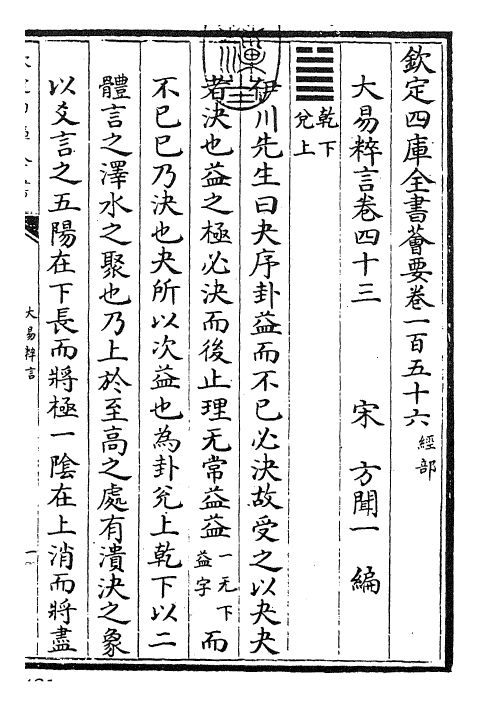 欽定四庫全書薈要卷一百五十六 經部
大易粹言卷四十三 宋 方聞一 編
乾下
兌上
伊川先生曰夬序卦益而不已必決故受之以夬夬
者決也益之極必決而後止理无常益益一无下益字而
不已已乃決也夬所以次益也為卦兌上乾下以二
體言之澤水之聚也乃上於至高之處有潰決之象
以爻言之五陽在下長而將極一陰在上消而將盡
大易粹言
一